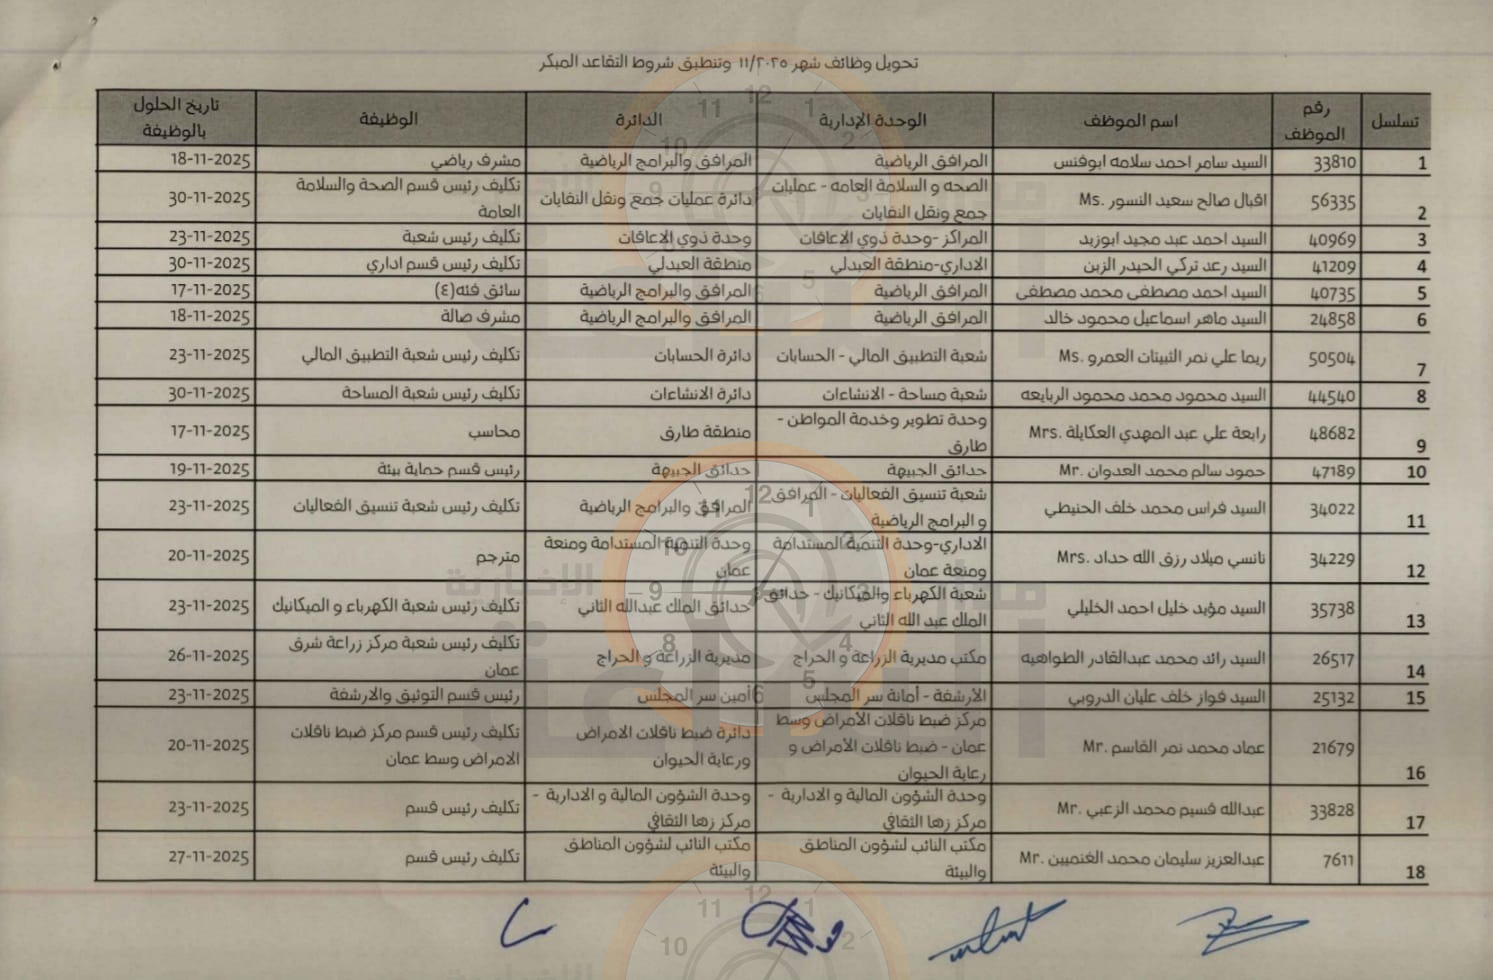 تحويل وظائف شهر ١١/٢٠٢٥ وتنطبق شروط التقاعد المبكر
تسلسل | رقم الموظف | اسم الموظف | الوحدة الإدارية | الدائرة | الوظيفة | تاريخ الحلول بالوظيفة
1 | 33810 | السيد سامر احمد سلامه ابوفنس | المرافق الرياضية | المرافق والبرامج الرياضية | مشرف رياضي | 18-11-2025
2 | 56335 | اقبال صالح سعيد النسور .Ms | الصحه و السلامة العامه - عمليات جمع ونقل النفايات | دائرة عمليات جمع ونقل النفايات | تكليف رئيس قسم الصحة والسلامة العامة | 30-11-2025
3 | 40969 | السيد احمد عبد مجيد ابوزيد | المراكز -وحدة ذوي الاعاقات | وحدة ذوي الاعاقات | تكليف رئيس شعبة | 23-11-2025
4 | 41209 | السيد رعد تركي الحيدر الزبن | الاداري-منطقة العبدلي | منطقة العبدلي | تكليف رئيس قسم اداري | 30-11-2025
5 | 40735 | السيد احمد مصطفى محمد مصطفى | المرافق الرياضية | المرافق والبرامج الرياضية | سائق فئه(٤) | 17-11-2025
6 | 24858 | السيد ماهر اسماعيل محمود خالد | المرافق الرياضية | المرافق والبرامج الرياضية | مشرف صالة | 18-11-2025
7 | 50504 | ريما علي نمر الثبيتات العمرو .Ms | شعبة التطبيق المالي - الحسابات | دائرة الحسابات | تكليف رئيس شعبة التطبيق المالي | 23-11-2025
8 | 44540 | السيد محمود محمد محمود الربايعه | شعبة مساحة - الانشاءات | دائرة الانشاءات | تكليف رئيس شعبة المساحة | 30-11-2025
9 | 48682 | رابعة علي عبد المهدي العكايلة .Mrs | وحدة تطوير وخدمة المواطن - طارق | منطقة طارق | محاسب | 17-11-2025
10 | 47189 | حمود سالم محمد العدوان .Mr | حدائق الجبيهة | حدائق الجبيهة | رئيس قسم حماية بيئة | 19-11-2025
11 | 34022 | السيد فراس محمد خلف الحنيطي | شعبة تنسيق الفعاليات - المرافق و البرامج الرياضية | المرافق والبرامج الرياضية | تكليف رئيس شعبة تنسيق الفعاليات | 23-11-2025
12 | 34229 | نانسي ميلاد رزق الله حداد .Mrs | الاداري-وحدة التنمية المستدامة ومنعة عمان | وحدة التنمية المستدامة ومنعة عمان | مترجم | 20-11-2025
13 | 35738 | السيد مؤيد خليل احمد الخليلي | شعبة الكهرباء والميكانيك - حدائق الملك عبد الله الثاني | حدائق الملك عبدالله الثاني | تكليف رئيس شعبة الكهرباء و الميكانيك | 23-11-2025
14 | 26517 | السيد رائد محمد عبدالقادر الطواهيه | مكتب مديرية الزراعة و الحراج | مديرية الزراعة و الحراج | تكليف رئيس شعبة مركز زراعة شرق عمان | 26-11-2025
15 | 25132 | السيد فواز خلف عليان الدروبي | الأرشفة - أمانة سر المجلس | أمين سر المجلس | رئيس قسم التوثيق والارشفة | 23-11-2025
16 | 21679 | عماد محمد نمر القاسم .Mr | مركز ضبط ناقلات الأمراض وسط عمان - ضبط ناقلات الأمراض و رعاية الحيوان | دائرة ضبط ناقلات الامراض ورعاية الحيوان | تكليف رئيس قسم مركز ضبط ناقلات الامراض وسط عمان | 20-11-2025
17 | 33828 | عبدالله قسيم محمد الزعبي .Mr | وحدة الشؤون المالية و الادارية - مركز زها الثقافي | وحدة الشؤون المالية و الادارية - مركز زها الثقافي | تكليف رئيس قسم | 23-11-2025
18 | 7611 | عبدالعزيز سليمان محمد الغنميين .Mr | مكتب النائب لشؤون المناطق والبيئة | مكتب النائب لشؤون المناطق والبيئة | تكليف رئيس قسم | 27-11-2025